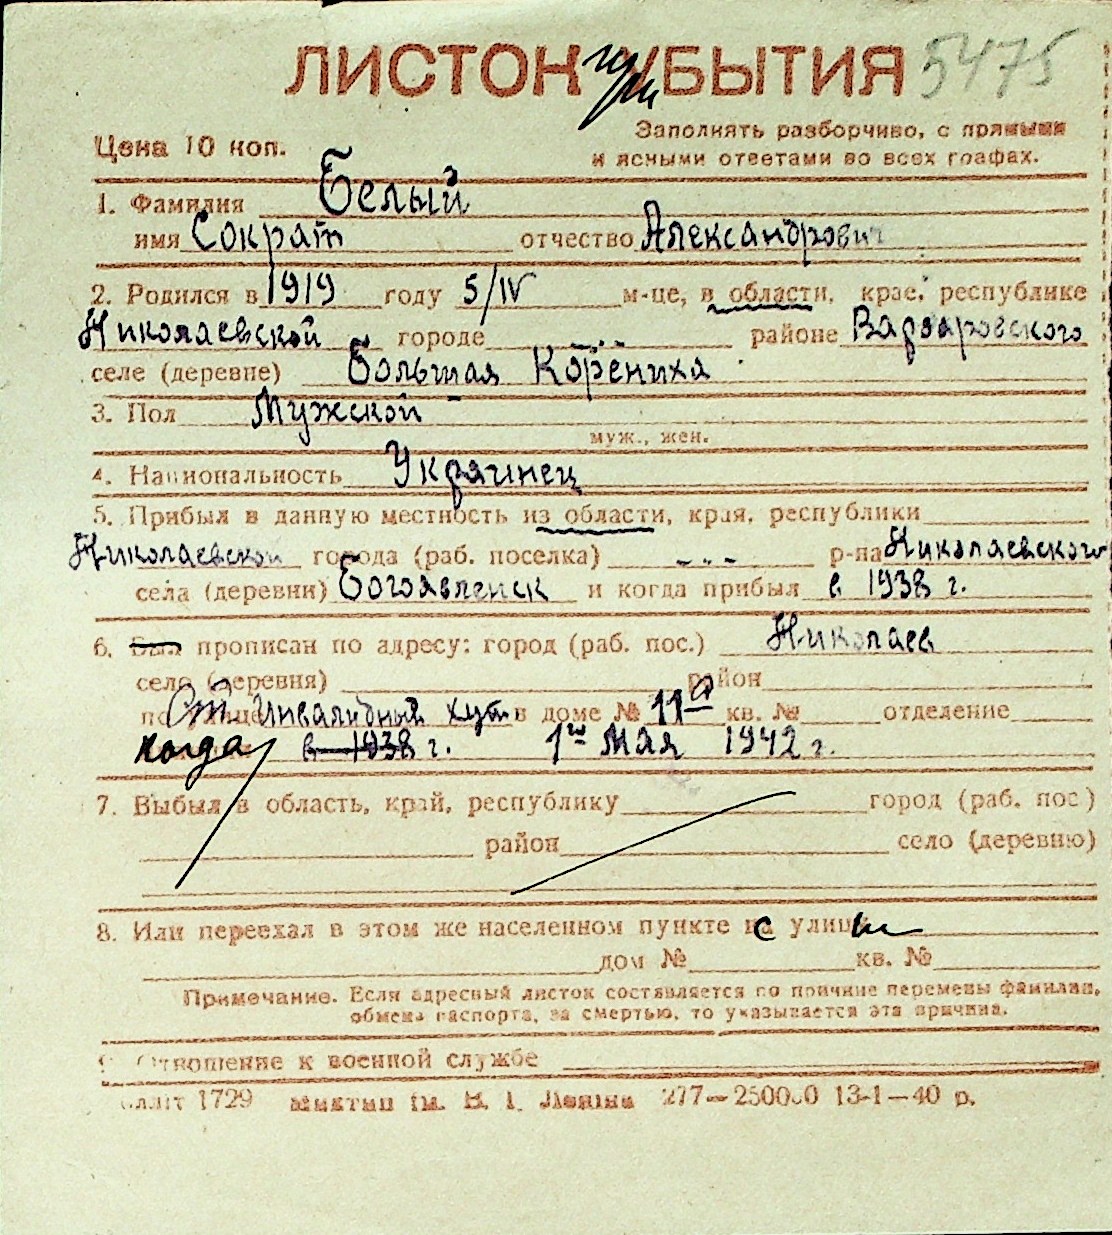 ЛИСТОК при УБЫТИЯ 5475
Цена 10 коп.
Заполнять разборчиво, с прямыми
и ясными ответами во всех графах.
1. Фамилия Белый
имя Сократ отчество Александрович
2. Родился в 1919 году 5/IV м-це, в области, крае, республике
Николаевской городе -..- районе Варваровского
селе (деревне) Большая Корениха
3. Пол Мужской
муж., жен.
4. Национальность Украинец
5. Прибыл в данную местность из области, края, республики
Николаевской города (раб. поселка) -..- р-на Николаевского
села (деревни) Богоявленск и когда прибыл в 1938 г.
6. Был прописан по адресу: город (раб. пос.) Николаев
село (деревня) район
по Инвалидный хут в доме № 11а кв. № отделение
когда в 1938 г. 1го мая 1942 г.
7. Выбыл в область, край, республику город (раб. пос)
район село (деревню)
8. Или переехал в этом же населенном пункте с улицы
дом № кв. №
Примечание. Если адресный листок составляется по причине перемены фамилии,
обмена паспорта, за смертью, то указывается эта причина.
9. Отношение к военной службе
1729 ім. В. І. Леніна 277—250000 13-1—40 р.